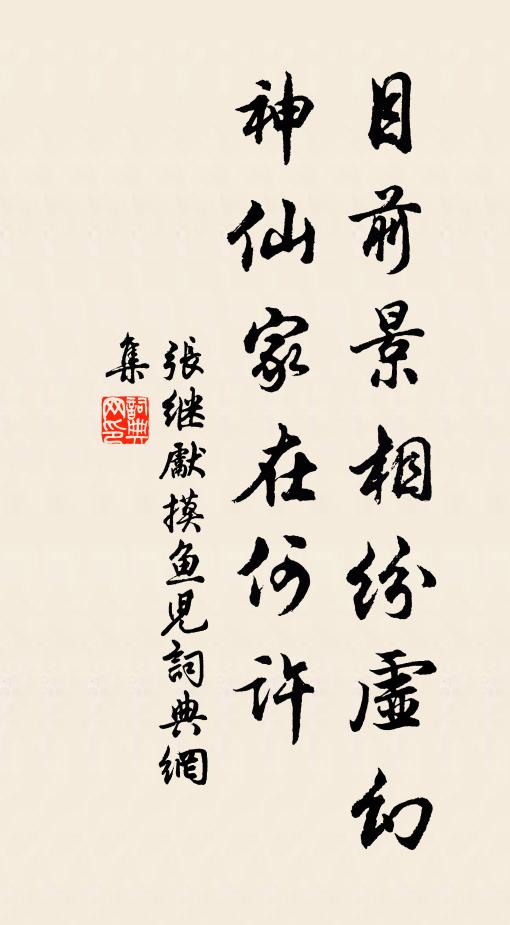 目前景相纷虛幻
神仙家在何许
張继獻摸鱼児詞典網
集
詞典网印